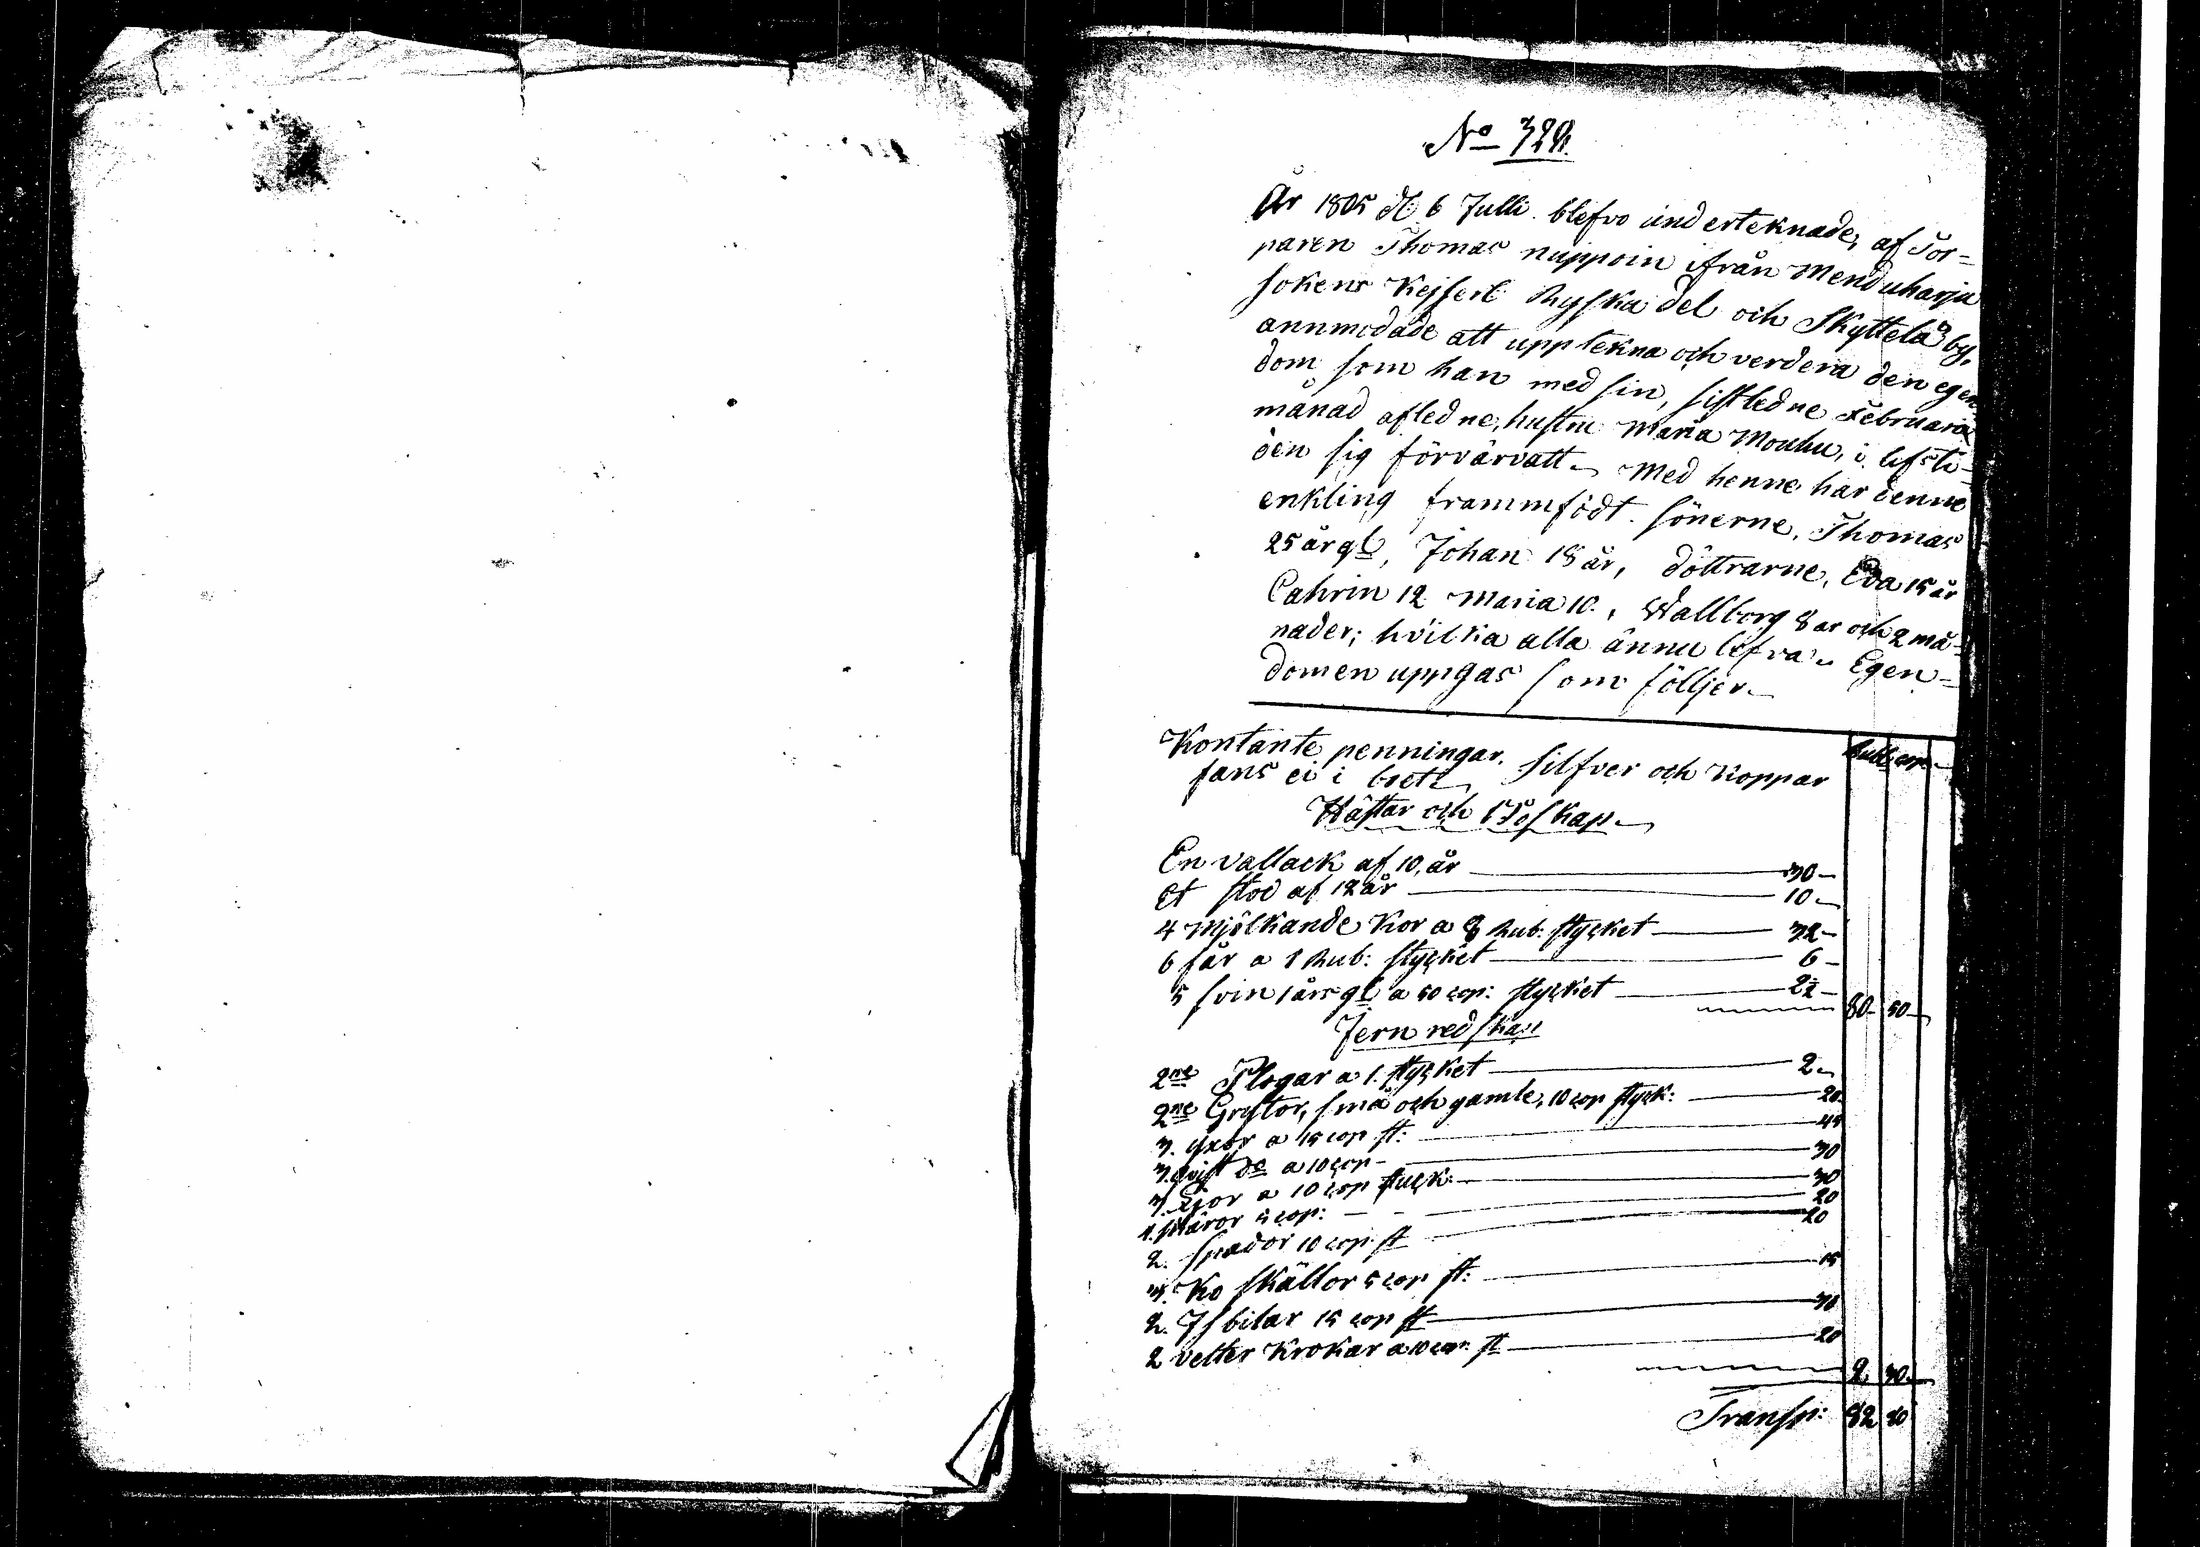 No 322.
År 1805 d. 6 Julli blefvo undertecknade, af Tor=
paren Thomas nuppoin ifrån Menduharju
sokens Kejserl: Ryska del och Skyttelä by,
annmodade att upptekna och verdera den egen
dom som han med sin, sistledne Februarii
månad afledne, hustru Maria Mouhu, i lifsti-
den sig förvärvatt. Med henne har denne
enkling frammfödt sönerne, Thomas
25 år gl, Johan 18 år, döttrarne, Eva 15 år
Cahrin 12 Maria 10., Wallborg 8 ar och 2 må-
nader; hvilka alla ännu lefva. Egen=
domen uppgas som följjer.
Kontante penningar, Silfver och Koppar Rubl cop
fans ei i boet.
Hästar och Boskap.
En vallack af 10, år 30 -
et stod af 12 år 10 -
4 mjölkande Kor a 8 Rub: stycket 32 -
6 får a 1 Rub: stycket 6 -
5 svin 1 års gl a 50 cop: stycket 2½ -
80 - 50 -
Jern redskap
2ne Plogar a 1. stycket 2 -
2ne Grytor, små och gamle, 10 cop styck: 20
3. yxor a 15 cop st: 45
3. qvist do a 10 cop - 30
3. Lior a 10 cop styck: 30
4. skäror 5 cop: - - 20
2. spador 10 cop st 20
3. Ko skällor 5 cop st: 15
2. Is bilar 15 cop st 30
2 velter Krokar a 10 cop: st 20
2 30
Transp: 82 80